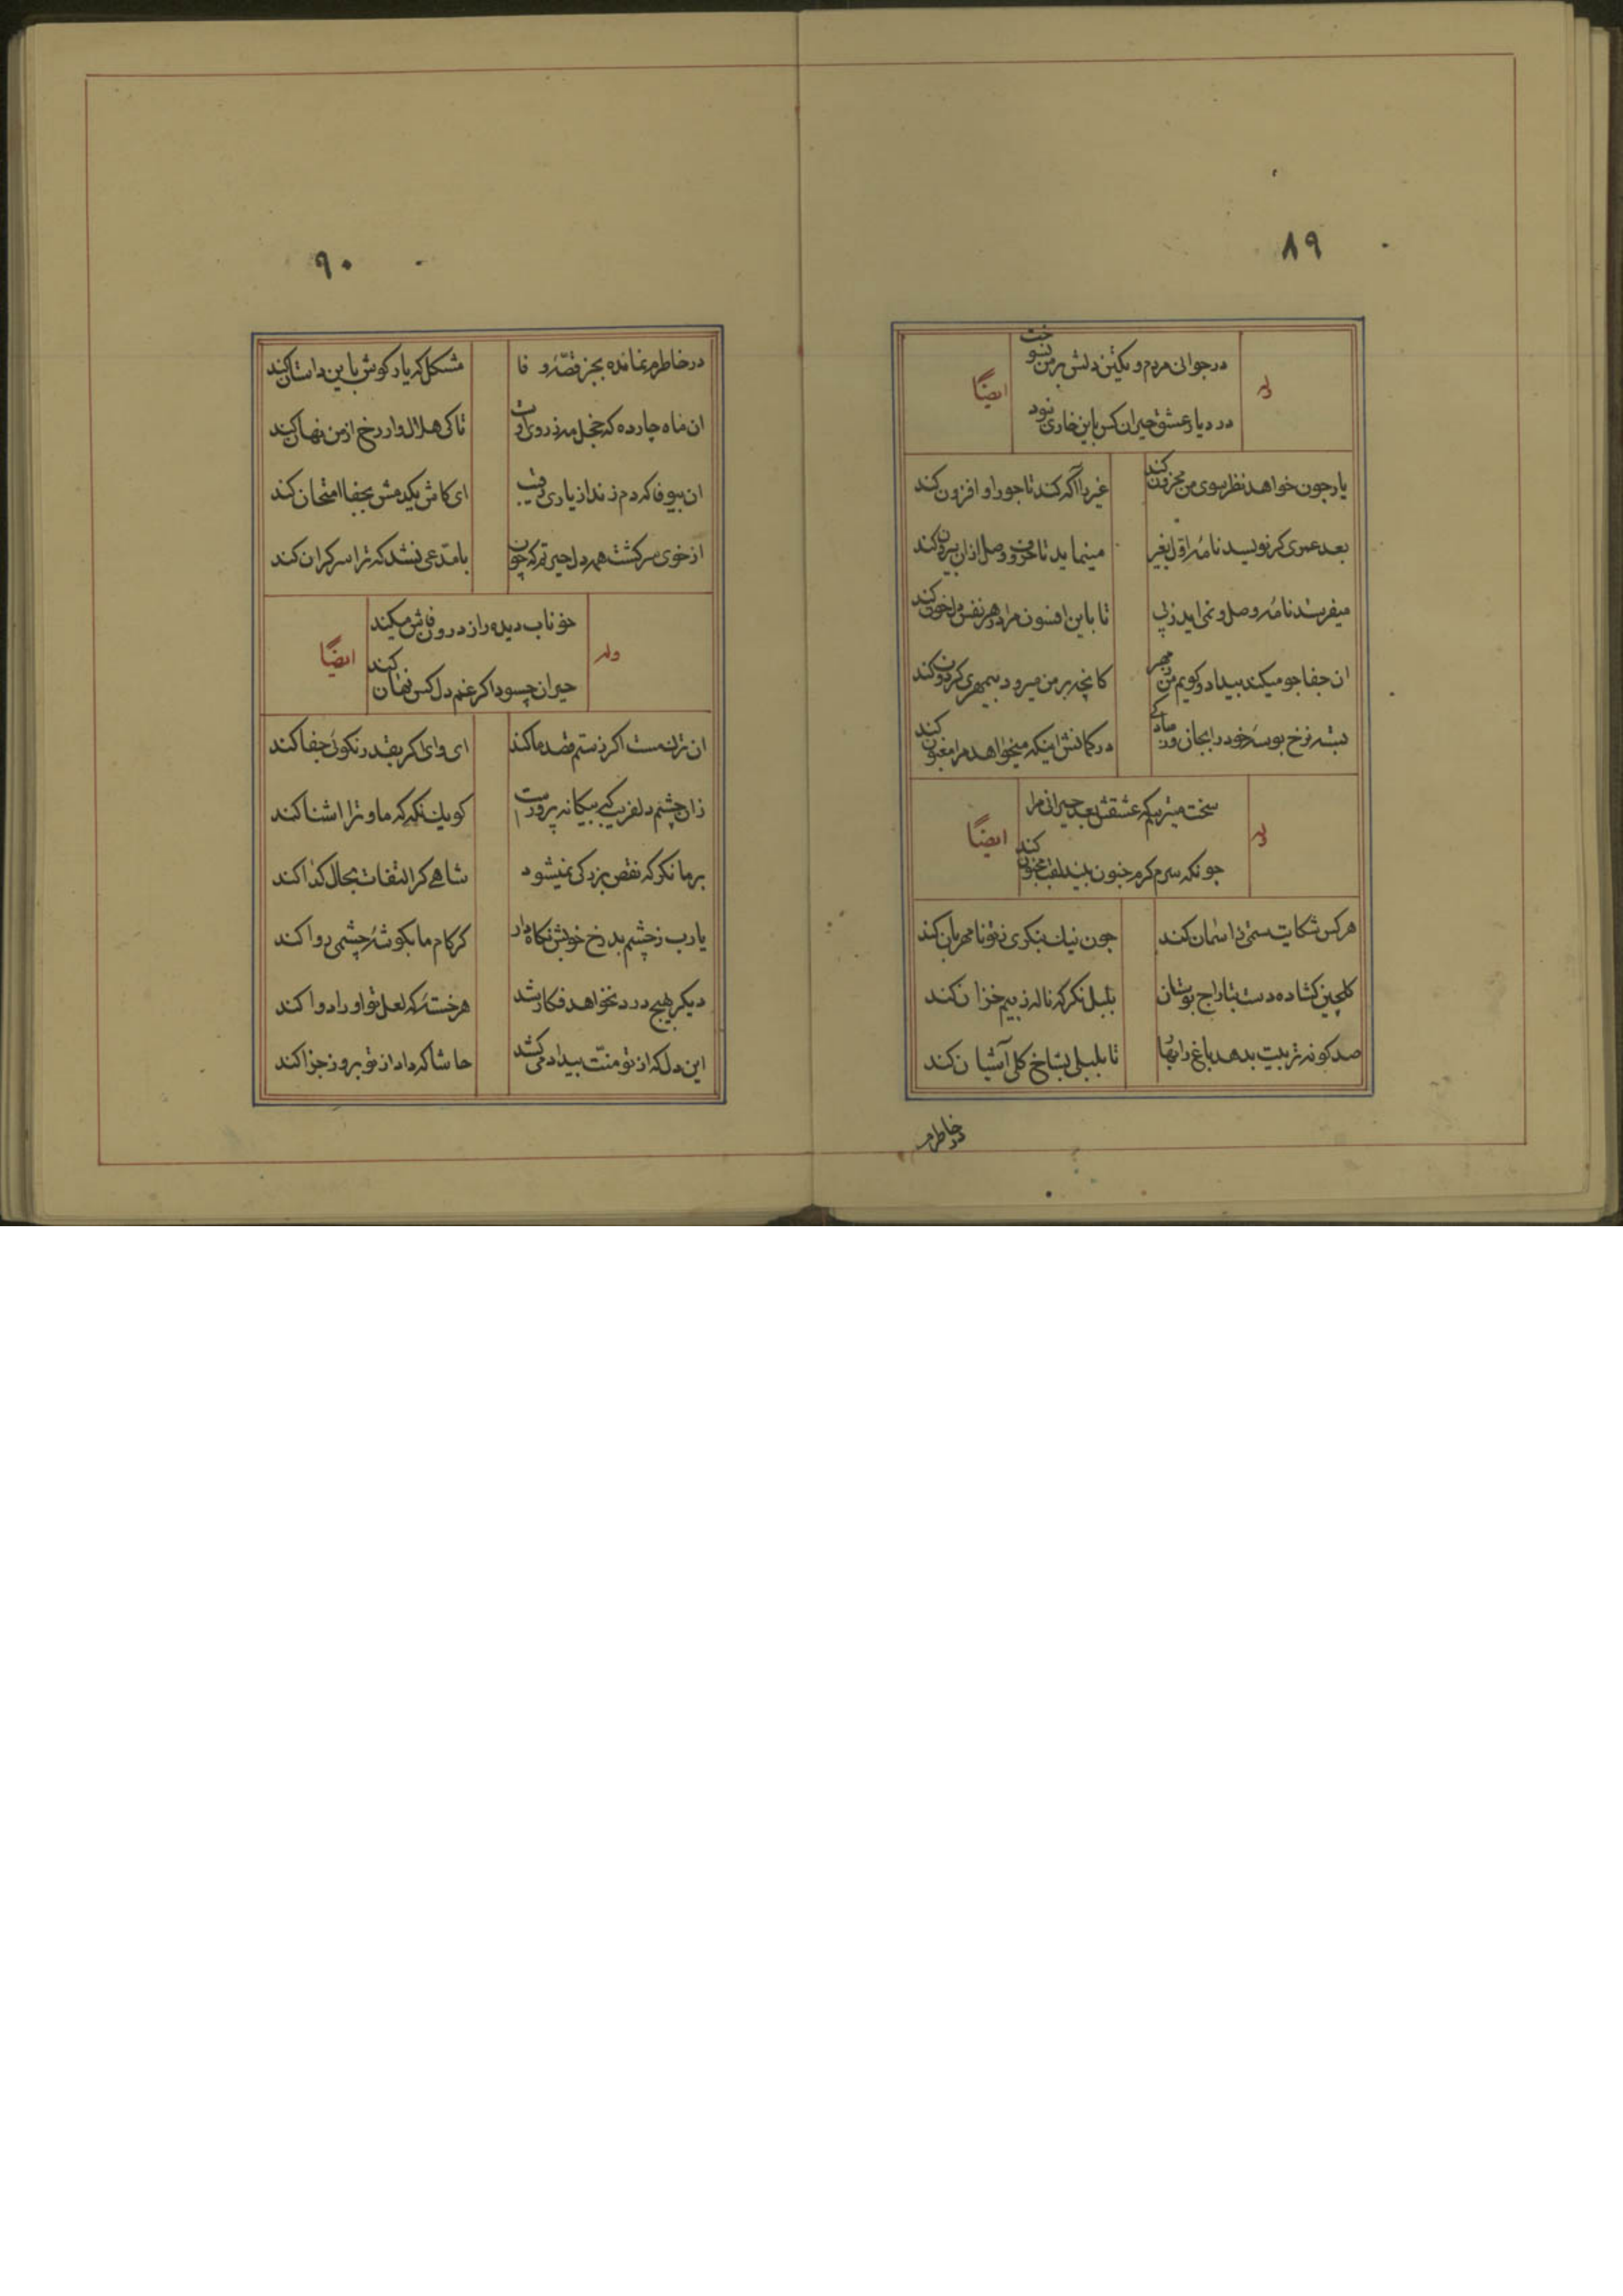 ۸۹
در جوانی مردم و یکتن دلش بر من نسوخت
وله
ایضاً
در دیار عشق حیران کس باین خاری نبود
یار چون خواهد نظر سوی من محزون کند
غیر را آگه کند تا جور او افزون کند
بعد عمری کر نویسد نامهٔ اول بغیر
مینماید تا حرف وصل ازان بیرون کند
میفرستد نامهٔ وصل و نمی اید ز پی
تا باین افسون مرا در هر نفس دلخون کند
ان جفا جو میکند بیداد و کویم من ز مهر
کانچه بر من میرود بیمهری کردون کند
بسته نرخ بوسهٔ خود را بجان ور
در کمانش اینکه میخواهد مرا مغبون کند
سخت میترسم که عشقش بعد حیرانی مرا
وله
ایضاً
چونکه سرکرم جنون بیند لقب مجنون کند
هر کس شکایت ستمی ز اسمان کند
چون نیك بنکری ز تو نامهربان کند
کلچین کشاده دست بتاراج بوستان
بلبل نکر که ناله ز بیم خزان کند
صد کونه تربیت بدهد باغ را بهار
تا بلبلی بشاخ کلی آشیان کند
در خاطرم
۹۰
در خاطرم نمانده بجز قصهٔ وفا
مشکل که یار کوش باین داستان کند
ان ماه چارده که خجل مه ز روی اوست
تا کی هلال وار رخ از من نهان کند
ان بیوفا که دم زند از یاری رقیب
ای کاش یکدمش بجفا امتحان کند
از خوی سرکشت همه دل حیرتم که چون
با مدعی نشد که ترا سرکران کند
خوناب دیده راز درون فاش میکند
وله
ایضاً
حیران چسود اکر غم دل کس نهان کند
ان ترك مست اکر ز ستم قصد ما کند
ای وای اکر بقدر نکوئی جفا کند
زان چشم دلفریب که بیکانه پرور است
کو یك نکه که ما و ترا اشنا کند
بر ما نکر که نقص بزرکی نمیشود
شاهی کر التفات بحال کدا کند
یارب ز چشم بد رخ خوبش نکاه دار
کر کام ما بکوشهٔ چشمی روا کند
دیکر بهیچ درد نخواهد فکار شد
هر خستهٔ که لعل تو او را دوا کند
این دل که از تو منت بیداد می کشد
حاشا که داد از تو بروز جزا کند